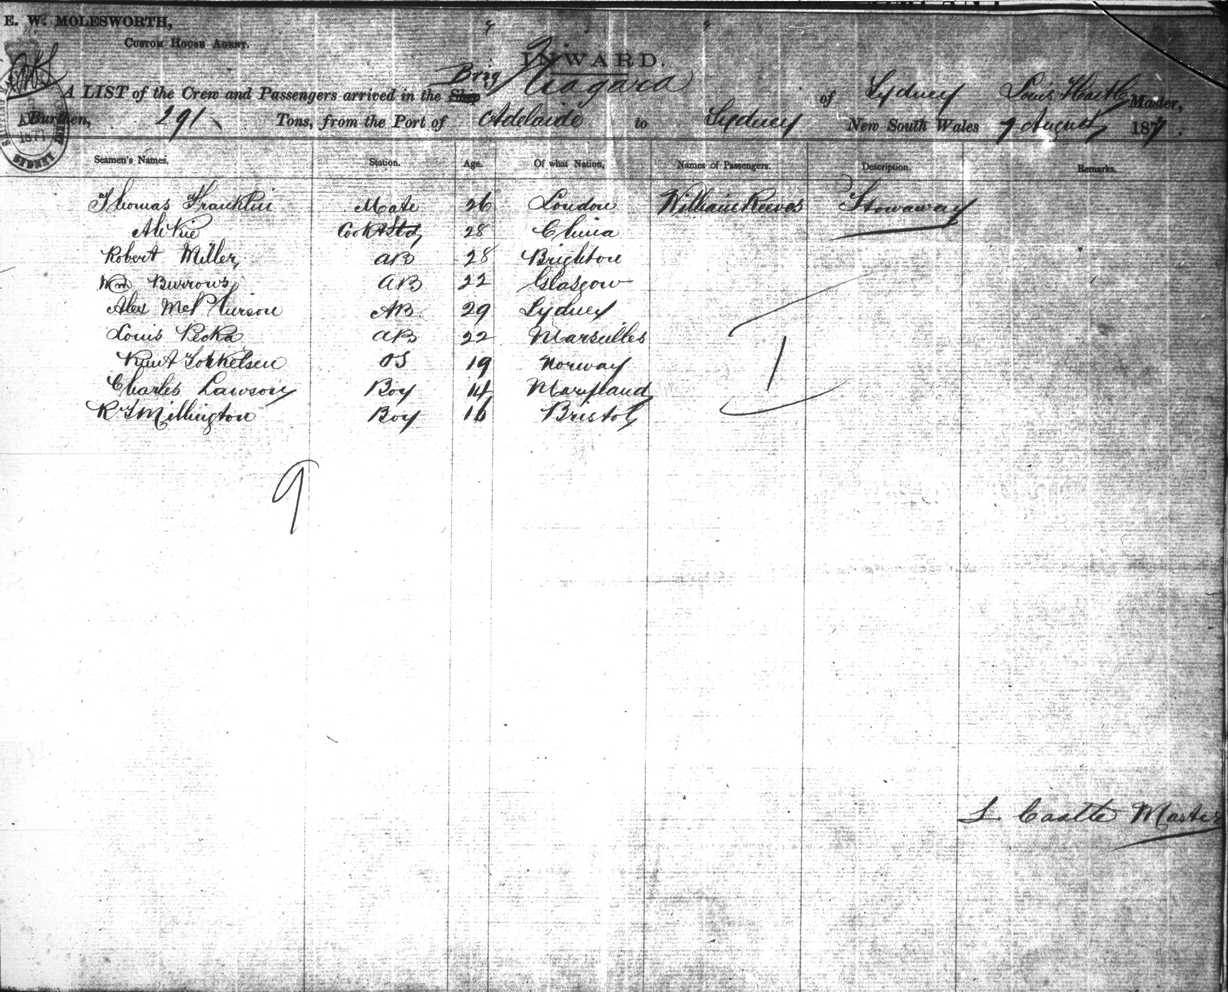 E. W. MOLESWORTH,
CUSTOM HOUSE AGENT.
INWARD.
A LIST of the Crew and Passengers arrived in the Ship Brig Niagara of Sydney Louis Master,
Burthen, 291 Tons, from the Port of Adelaide to Sydney New South Wales 7 August 1871.
Seamen's Names. Station. Age. Of what Nation. Names of Passengers. Description. Remarks.
Thomas Franklin Mate 26 London William Reeves Stowaway
Cook & Std 28 China
Robert Miller AB 28 Brighton
Wm Burrows AB 22 Glasgow
Alex AB 29 Sydney
Louis AB 22 Marseilles
OS 19 Norway
Charles Lawson Boy 14 Maryland
Millington Boy 16 Bristol
1
9
L Castle Master